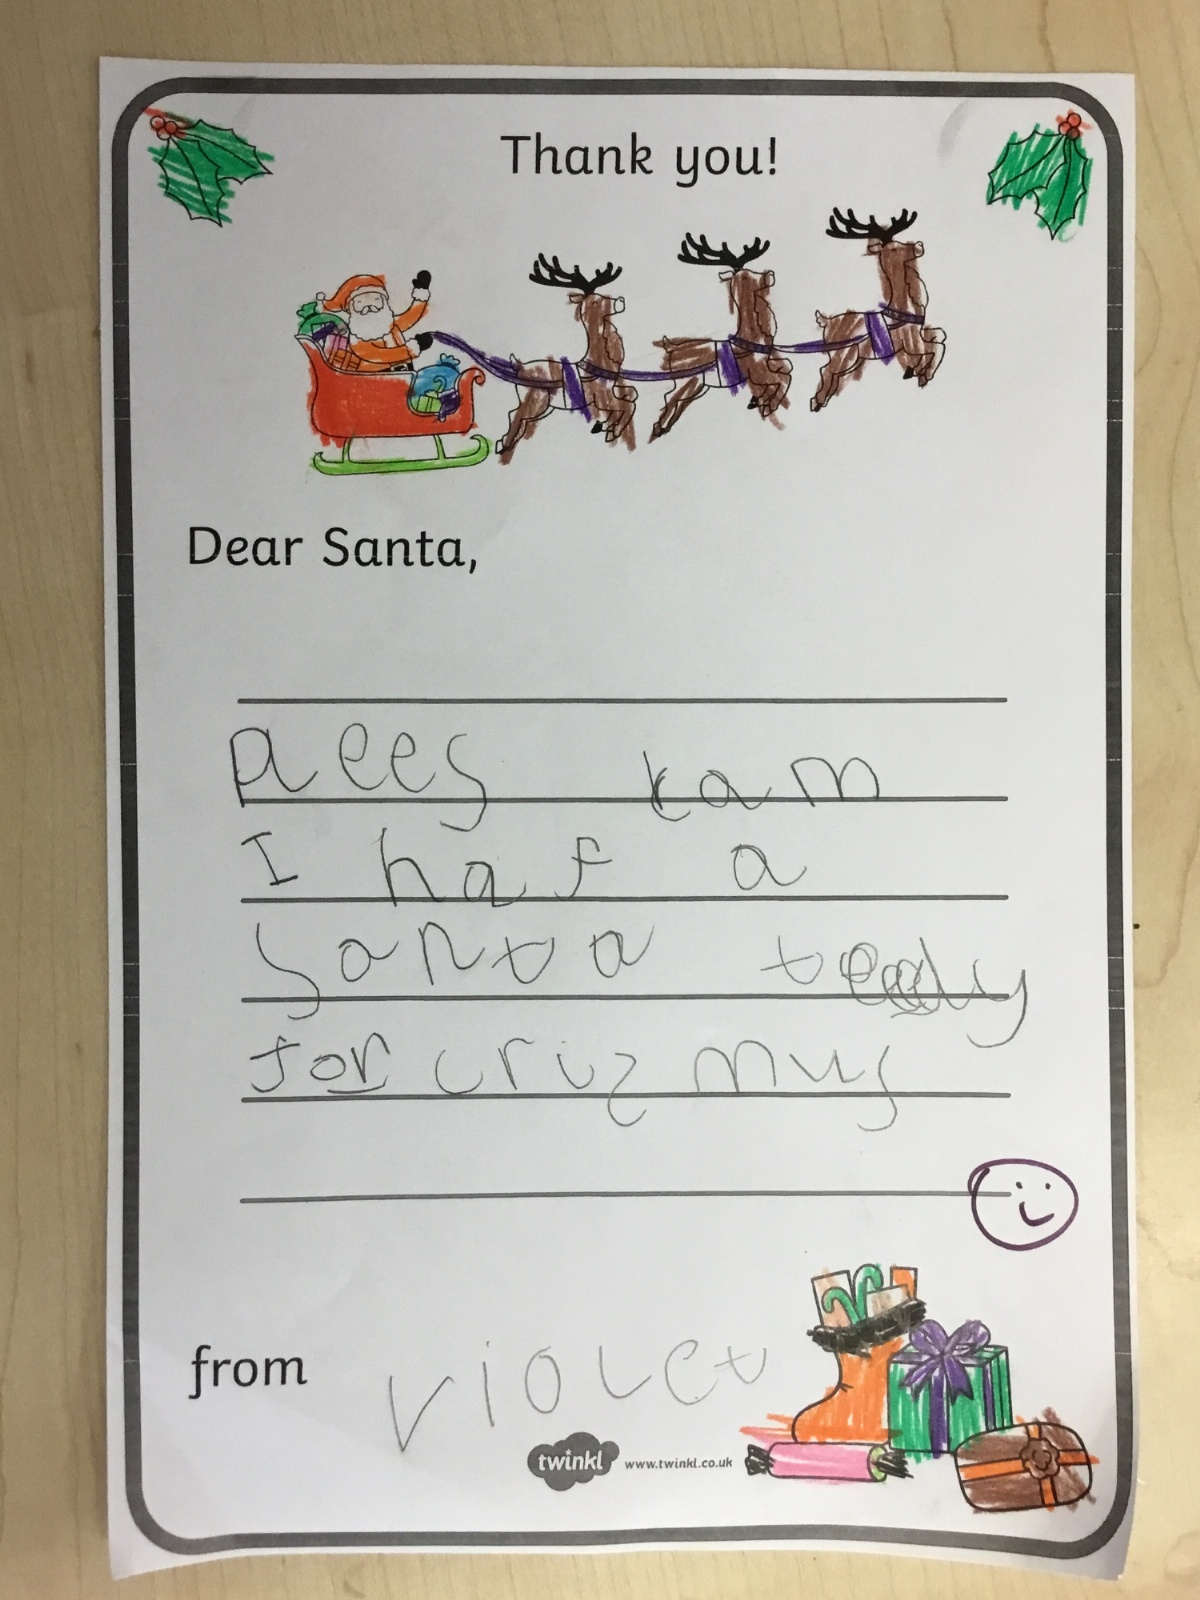 Thank you!
Dear Santa,
Plees kam
I haf a
Santa teddy
for crizmus
from violet
twinkl www.twinkl.co.uk